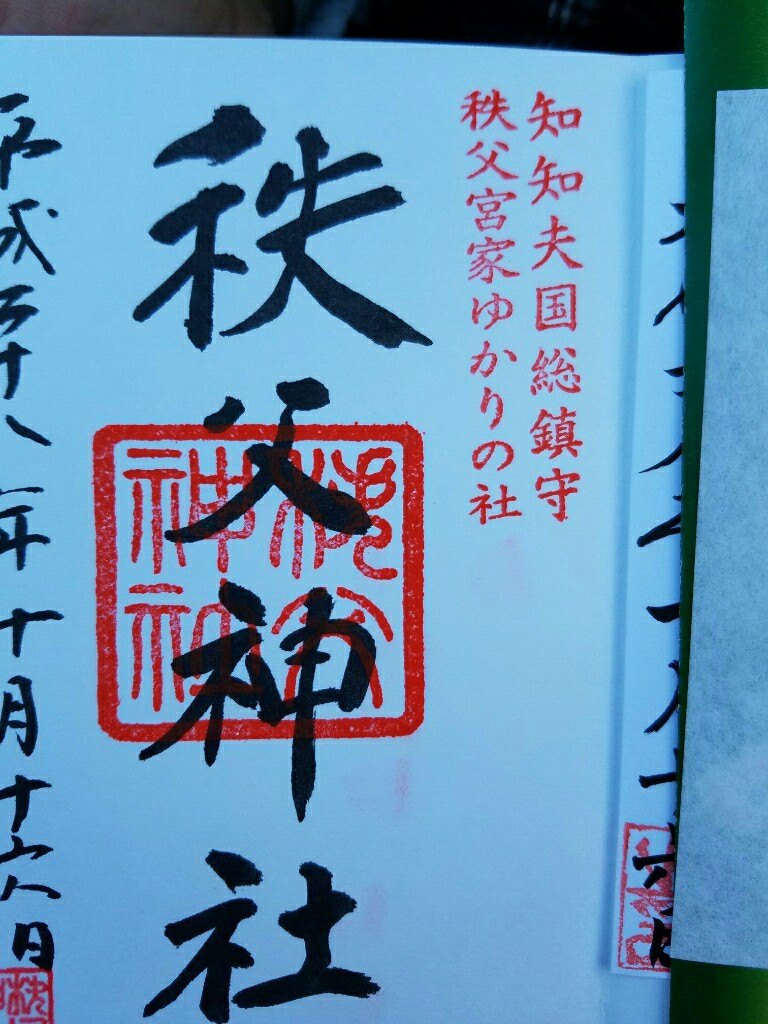 知知夫国総鎮守
秩父宮家ゆかりの社
秩父神社
秩父神社
平成二十八年十月十六日